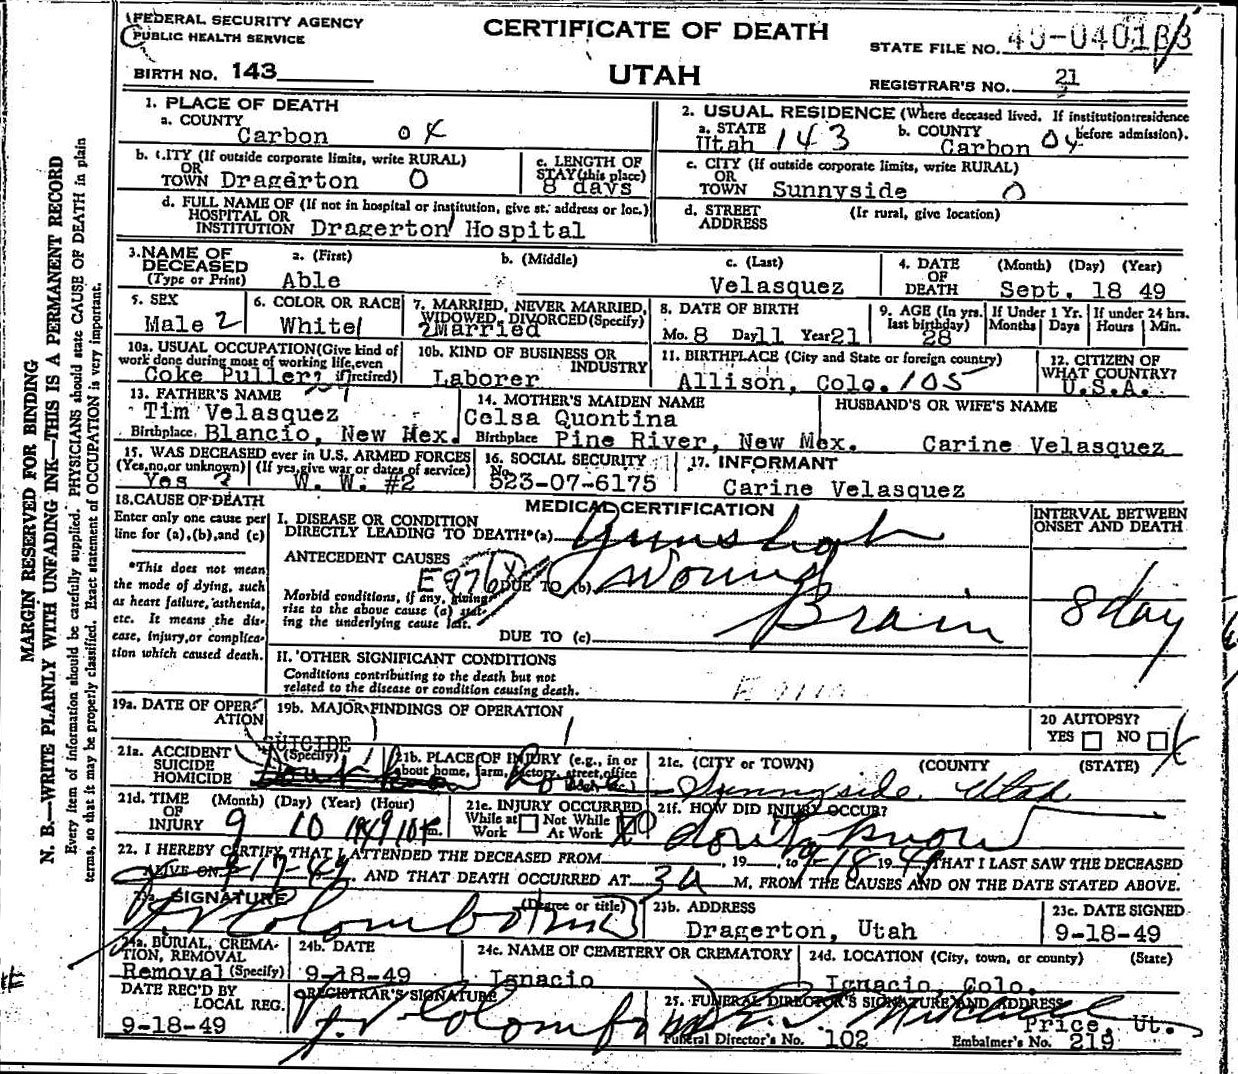 FEDERAL SECURITY AGENCY
PUBLIC HEALTH SERVICE
CERTIFICATE OF DEATH
STATE FILE NO.
BIRTH NO. 143
UTAH
REGISTRAR'S NO. 21
1. PLACE OF DEATH
a. COUNTY
Carbon 04
2. USUAL RESIDENCE (Where deceased lived. If institution: residence before admission).
a. STATE Utah 143 b. COUNTY Carbon 04
b. CITY (If outside corporate limits, write RURAL)
OR
TOWN Dragerton 0
c. LENGTH OF STAY (this place)
8 days
c. CITY (If outside corporate limits, write RURAL)
OR
TOWN Sunnyside 0
d. FULL NAME OF (If not in hospital or institution, give st. address or loc.)
HOSPITAL OR
INSTITUTION Dragerton Hospital
d. STREET ADDRESS (If rural, give location)
3. NAME OF DECEASED (Type or Print)
a. (First) b. (Middle) c. (Last)
Able Velasquez
4. DATE OF DEATH (Month) (Day) (Year)
Sept. 18 49
5. SEX
Male 2
6. COLOR OR RACE
White 1
7. MARRIED, NEVER MARRIED, WIDOWED, DIVORCED (Specify)
2 Married
8. DATE OF BIRTH
Mo. 8 Day 11 Year 21
9. AGE (In yrs. last birthday)
28
If Under 1 Yr. Months Days
If under 24 hrs. Hours Min.
10a. USUAL OCCUPATION (Give kind of work done during most of working life, even if retired)
Coke Puller
10b. KIND OF BUSINESS OR INDUSTRY
Laborer
11. BIRTHPLACE (City and State or foreign country)
Allison, Colo. 105
12. CITIZEN OF WHAT COUNTRY?
U.S.A.
13. FATHER'S NAME
Tim Velasquez
Birthplace Blancio, New Mex.
14. MOTHER'S MAIDEN NAME
Celsa Quontina
Birthplace Pine River, New Mex.
HUSBAND'S OR WIFE'S NAME
Carine Velasquez
15. WAS DECEASED ever in U.S. ARMED FORCES
(Yes, no, or unknown) (If yes, give war or dates of service)
Yes W. W. #2
16. SOCIAL SECURITY No.
523-07-6175
17. INFORMANT
Carine Velasquez
18. CAUSE OF DEATH
Enter only one cause per line for (a), (b), and (c)
*This does not mean the mode of dying, such as heart failure, asthenia, etc. It means the disease, injury, or complication which caused death.
MEDICAL CERTIFICATION
INTERVAL BETWEEN ONSET AND DEATH
I. DISEASE OR CONDITION
DIRECTLY LEADING TO DEATH* (a) Gunshot
ANTECEDENT CAUSES
Morbid conditions, if any, giving rise to the above cause (a) stating the underlying cause last.
DUE TO (b) Wound
DUE TO (c) Brain
8 day
II. OTHER SIGNIFICANT CONDITIONS
Conditions contributing to the death but not related to the disease or condition causing death.
19a. DATE OF OPERATION
19b. MAJOR FINDINGS OF OPERATION
20 AUTOPSY?
YES NO X
21a. ACCIDENT SUICIDE HOMICIDE (Specify)
SUICIDE
21b. PLACE OF INJURY (e.g., in or about home, farm, factory, street, office
21c. (CITY or TOWN) (COUNTY (STATE)
Sunnyside Utah
21d. TIME OF INJURY (Month) (Day) (Year) (Hour)
9 10 1949
21e. INJURY OCCURRED
While at Work Not While At Work X
21f. HOW DID INJURY OCCUR?
don't know
22. I HEREBY CERTIFY THAT I ATTENDED THE DECEASED FROM , 19 , to 9-18 19 49 THAT I LAST SAW THE DECEASED
ALIVE ON 9-17-49, AND THAT DEATH OCCURRED AT 3a M, FROM THE CAUSES AND ON THE DATE STATED ABOVE.
23a. SIGNATURE (Degree or title)
Colombo
23b. ADDRESS
Dragerton, Utah
23c. DATE SIGNED
9-18-49
24a. BURIAL, CREMATION, REMOVAL (Specify)
Removal
24b. DATE
9-18-49
24c. NAME OF CEMETERY OR CREMATORY
Ignacio
24d. LOCATION (City, town, or county) (State)
Ignacio, Colo.
DATE REC'D BY LOCAL REG.
9-18-49
REGISTRAR'S SIGNATURE
Colombo
25. FUNERAL DIRECTOR'S SIGNATURE AND ADDRESS
Mitchell
Price, Ut.
Funeral Director's No. 102 Embalmer's No. 219
MARGIN RESERVED FOR BINDING
N. B.—WRITE PLAINLY WITH UNFADING INK—THIS IS A PERMANENT RECORD
Every item of information should be carefully supplied. PHYSICIANS should state CAUSE OF DEATH in plain
terms, so that it may be properly classified. Exact statement of OCCUPATION is very important.